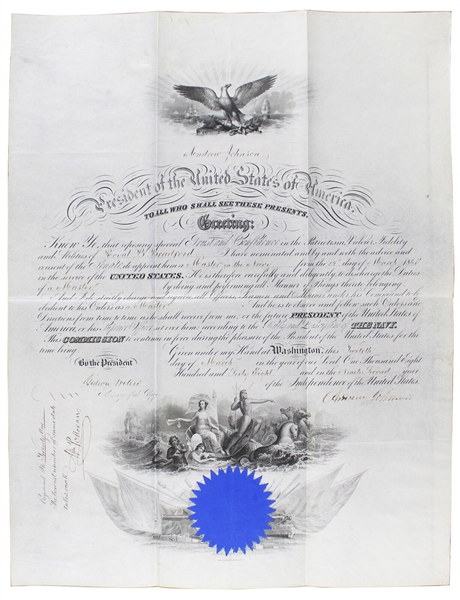 Andrew Johnson,
President of the United States of America,
TO ALL WHO SHALL SEE THESE PRESENTS,
Greeting:
Know Ye, that reposing special Trust and Confidence in the Patriotism, Valor, Fidelity
and Abilities of I have nominated and by and with the advice and
consent of the Senate, do appoint him a Master in the Navy
in the service of the UNITED STATES. He is therefore carefully and diligently to discharge the Duties
of a Master by doing and performing all Manner of Things thereto belonging.
And I do strictly charge and require all Officers, Seamen and Marines under his Command to be
obedient to his Orders as a Master And he is to observe and follow such Orders and
Directions from time to time as he shall receive from me, or the future PRESIDENT of the United States of
America, or his Superior Officer set over him, according to the Rules and Discipline of THE NAVY.
This COMMISSION to continue in force during the pleasure of the President of the United States for the
time being.
Given under my Hand at Washington, this
By the President
day of March in the year of our Lord One Thousand Eight
Hundred and Sixty Eight and in the Ninety Second year
of the Independence of the United States.